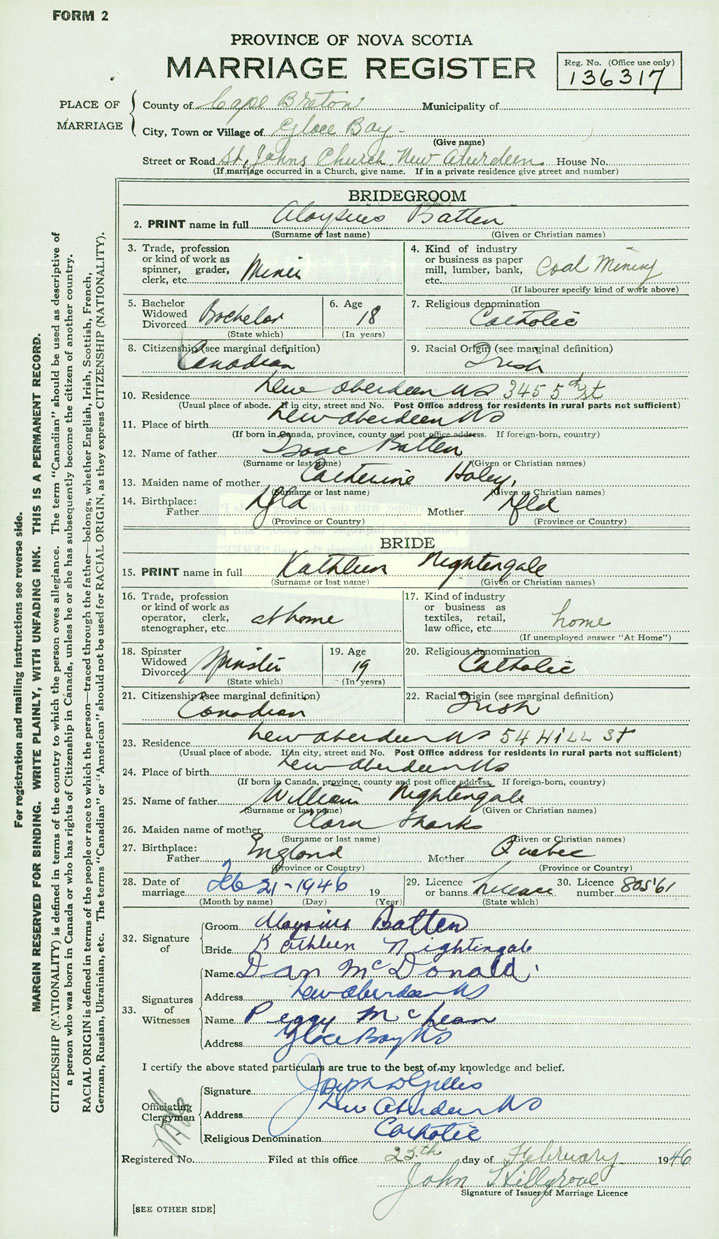 FORM 2
PROVINCE OF NOVA SCOTIA
MARRIAGE REGISTER
Reg. No. (Office use only)
136317
PLACE OF MARRIAGE
County of Cape Breton Municipality of
City, Town or Village of Glace Bay
(Give name)
Street or Road St. Johns Church New Aberdeen House No.
(If marriage occurred in a Church, give name. If in a private residence give street and number)
BRIDEGROOM
2. PRINT name in full Aloysius Batten
(Surname or last name) (Given or Christian names)
3. Trade, profession or kind of work as spinner, grader, clerk, etc. Miner
4. Kind of industry or business as paper mill, lumber, bank, etc. Coal Mining
(If labourer specify kind of work above)
5. Bachelor Widowed Divorced Bachelor
(State which)
6. Age 18
(In years)
7. Religious denomination
Catholic
8. Citizenship (see marginal definition)
Canadian
9. Racial Origin (see marginal definition)
Irish
10. Residence New Aberdeen NS 345 5th St
(Usual place of abode. If in city, street and No. Post Office address for residents in rural parts not sufficient)
11. Place of birth New Aberdeen NS
(If born in Canada, province, county and post office address. If foreign-born, country)
12. Name of father Isaac Batten
(Surname or last name) (Given or Christian names)
13. Maiden name of mother Catherine Haley
(Surname or last name) (Given or Christian names)
14. Birthplace: Father Nfld Mother Nfld
(Province or Country) (Province or Country)
BRIDE
15. PRINT name in full Kathleen Nightingale
(Surname or last name) (Given or Christian names)
16. Trade, profession or kind of work as operator, clerk, stenographer, etc. at home
17. Kind of industry or business as textiles, retail, law office, etc. home
(If unemployed answer "At Home")
18. Spinster Widowed Divorced Spinster
(State which)
19. Age 19
(In years)
20. Religious denomination
Catholic
21. Citizenship (see marginal definition)
Canadian
22. Racial Origin (see marginal definition)
Irish
23. Residence New Aberdeen NS 54 HILL St
(Usual place of abode. If in city, street and No. Post Office address for residents in rural parts not sufficient)
24. Place of birth New Aberdeen NS
(If born in Canada, province, county and post office address. If foreign-born, country)
25. Name of father William Nightingale
(Surname or last name) (Given or Christian names)
26. Maiden name of mother Clara
(Surname or last name) (Given or Christian names)
27. Birthplace: Father England Mother Quebec
(Province or Country) (Province or Country)
28. Date of marriage Feb 21-1946 19
(Month by name) (Day) (Year)
29. Licence or banns
(State which)
30. Licence number 80561
32. Signature of
Groom Aloysius Batten
Bride Kathleen Nightingale
33. Signatures of Witnesses
Name Dan McDonald
Address New Aberdeen NS
Name Peggy McLean
Address Glace Bay NS
I certify the above stated particulars are true to the best of my knowledge and belief.
Officiating Clergyman
Signature Joseph D Gillis
Address New Aberdeen NS
Religious Denomination Catholic
Registered No. Filed at this office 25th day of February 1946
John Hillgrove
Signature of Issuer of Marriage Licence
[SEE OTHER SIDE]
For registration and mailing instructions see reverse side.
MARGIN RESERVED FOR BINDING. WRITE PLAINLY, WITH UNFADING INK. THIS IS A PERMANENT RECORD.
CITIZENSHIP (NATIONALITY) is defined in terms of the country to which the person owes allegiance. The term "Canadian" should be used as descriptive of
a person who was born in Canada or who has rights of Citizenship in Canada, unless he or she has subsequently become the citizen of another country.
RACIAL ORIGIN is defined in terms of the people or race to which the person—traced through the father—belongs, whether English, Irish, Scottish, French,
German, Russian, Ukrainian, etc. The terms "Canadian" or "American" should not be used for RACIAL ORIGIN, as they express CITIZENSHIP (NATIONALITY).